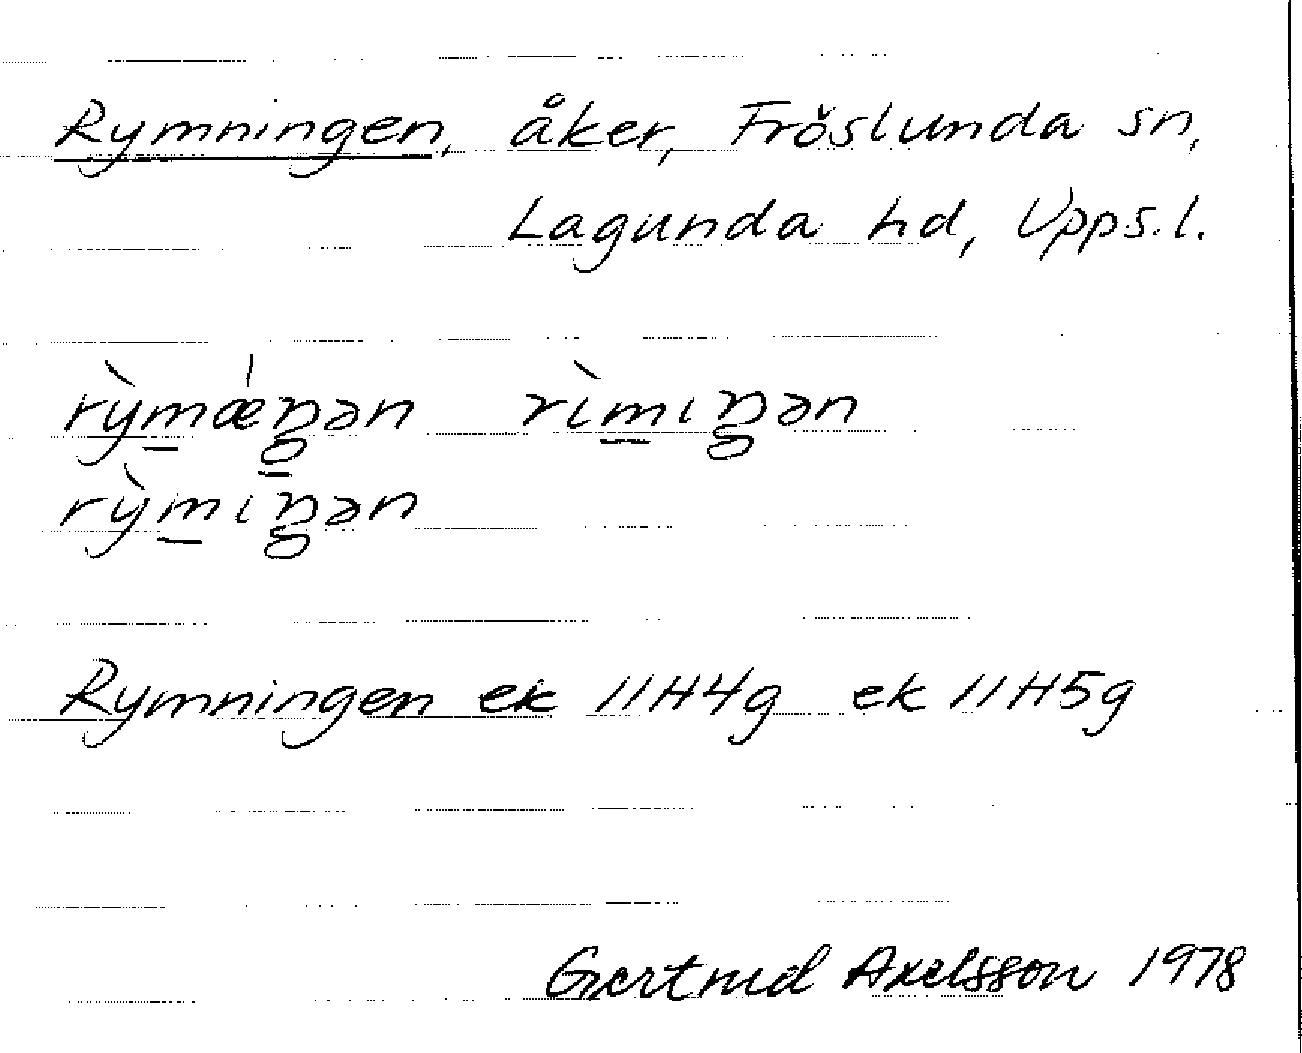 Rymningen, åker, Fröslunda sn,
Lagunda hd, Upps.l.
rỳm̲ǽŋ̲ən rìm̲ıŋən
rỳm̲ıŋən
Rymningen ek 11H4g ek 11H5g
Gertrud Axelsson 1978